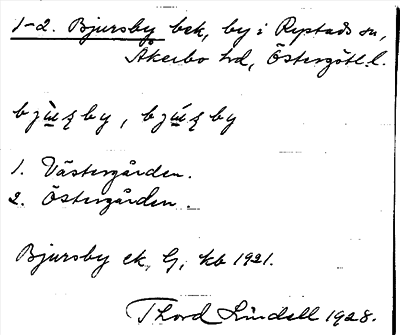 1-2. Bjursby bck, by i Rystads sn,
Åkerbo hd, Östergötl. l.
1. Västergården.
2. Östergården.
Bjursby ek. G, kb 1921.
Thord Lindell 1928.